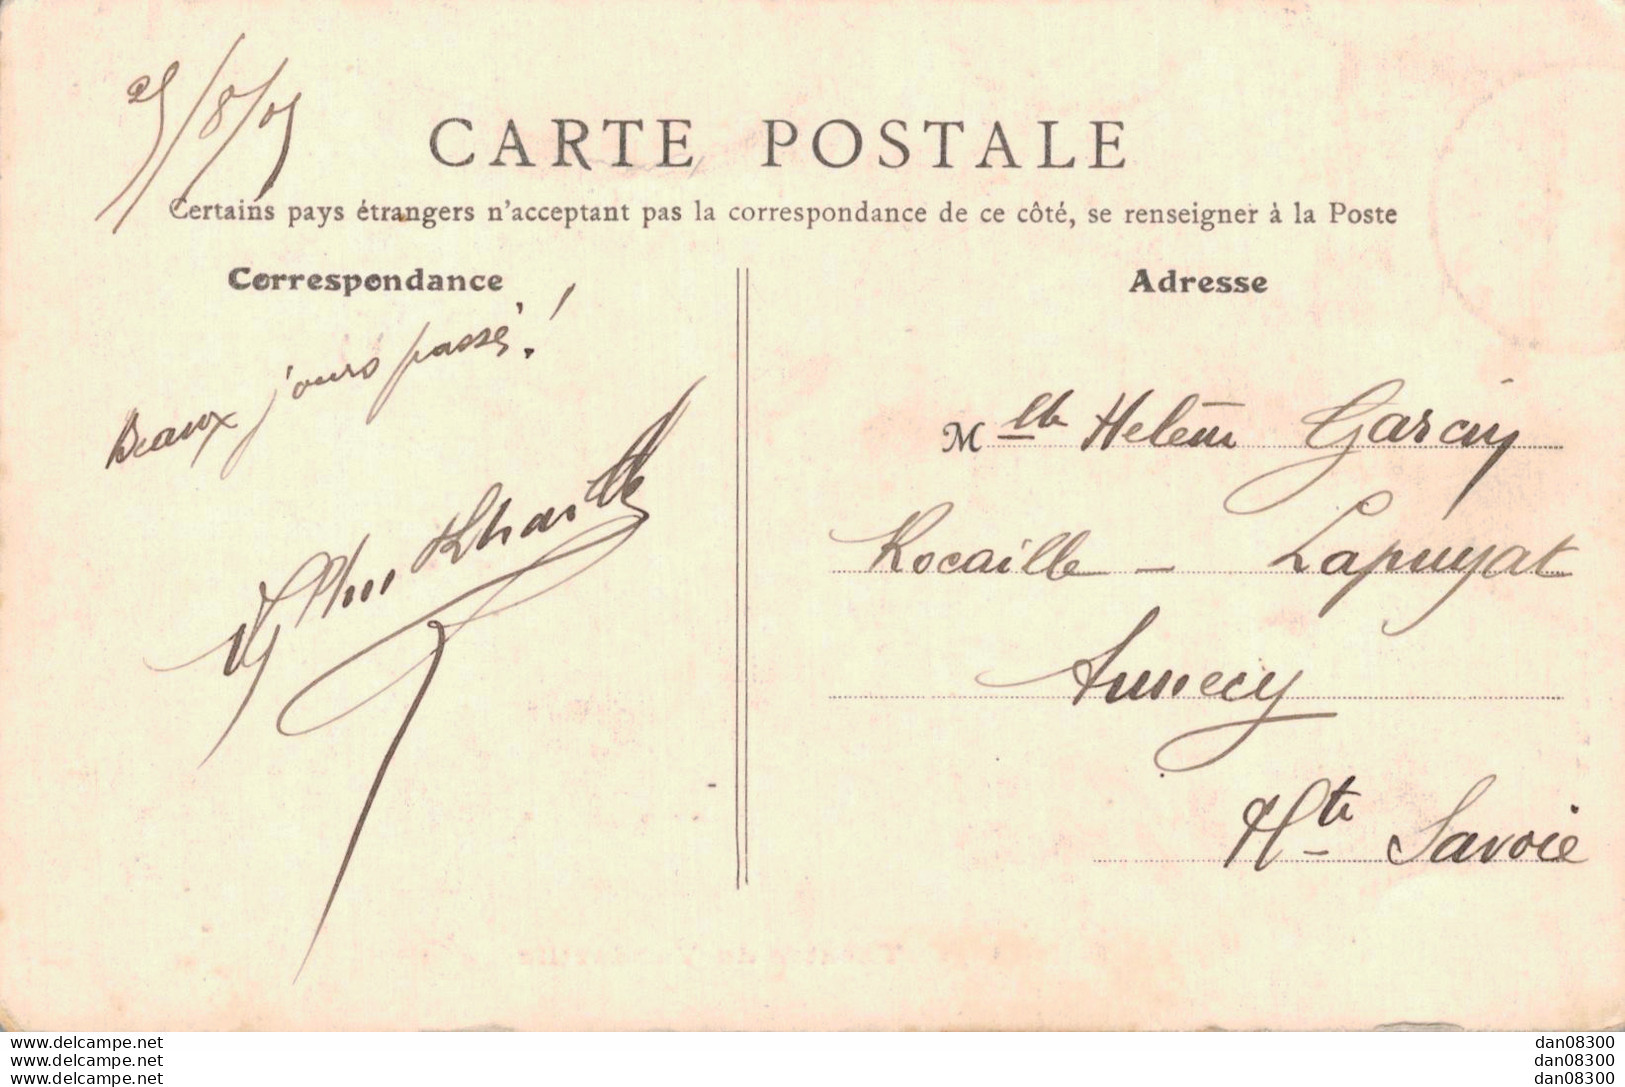 25/8/05
CARTE POSTALE
Certains pays étrangers n'acceptant pas la correspondance de ce côté, se renseigner à la Poste
Correspondance
Adresse
Beaux jours passés !
Mlle Helène Garcin
Rocaille - Lapuyat
Annecy
Hte Savoie
www.delcampe.net
www.delcampe.net
www.delcampe.net
dan08300
dan08300
dan08300